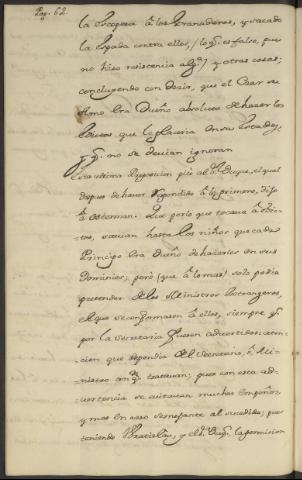 Pag. 62.
la Escopeta à los Granaderos, y sacado
la Espada contra ellos, / lo q.e es falso, pues
no hizo resistencia alg.a / y otras cosas;
concluyendo con decir, que el Czar su
Amo era Dueño absoluto de hacer los
que le placeria en su
q.e no se devian ignoran
ultima al Duque, el qual
despues de haver respondido à lo primero, dijo
à Osterman. Que por lo que tocava à
savian hasta los niños que cada
Principe era Dueño de hacerlos en sus
Dominios; però (que à lo mas) solo podia
pretender de los Ministros Estrangeros,
el que se conformasen à ellos, siempre q.e
por la Secretaria fuesen advertidos; aten-
cion que dependia del Secretario, ò Mi-
nistro con q.n tratavan; pues con esta ad-
vertencia se evitavan muchos empeños,
y mas en caso semejante al sucedido; pues
teniendo Bratislau, y el la permision